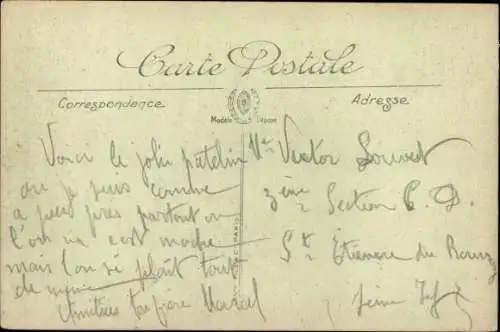 Carte Postale
Correspondance
Adresse
Modèle Déposé
Voici le joli patelin
ou je suis comme
à peu près partout ou
l'on va c'est moche
mais l'on s'y plaît tout
de même
Amitiés ton frère Marcel
Victor Louvet
3ème Section C. D.
St Étienne du Rouvray
Seine Inf